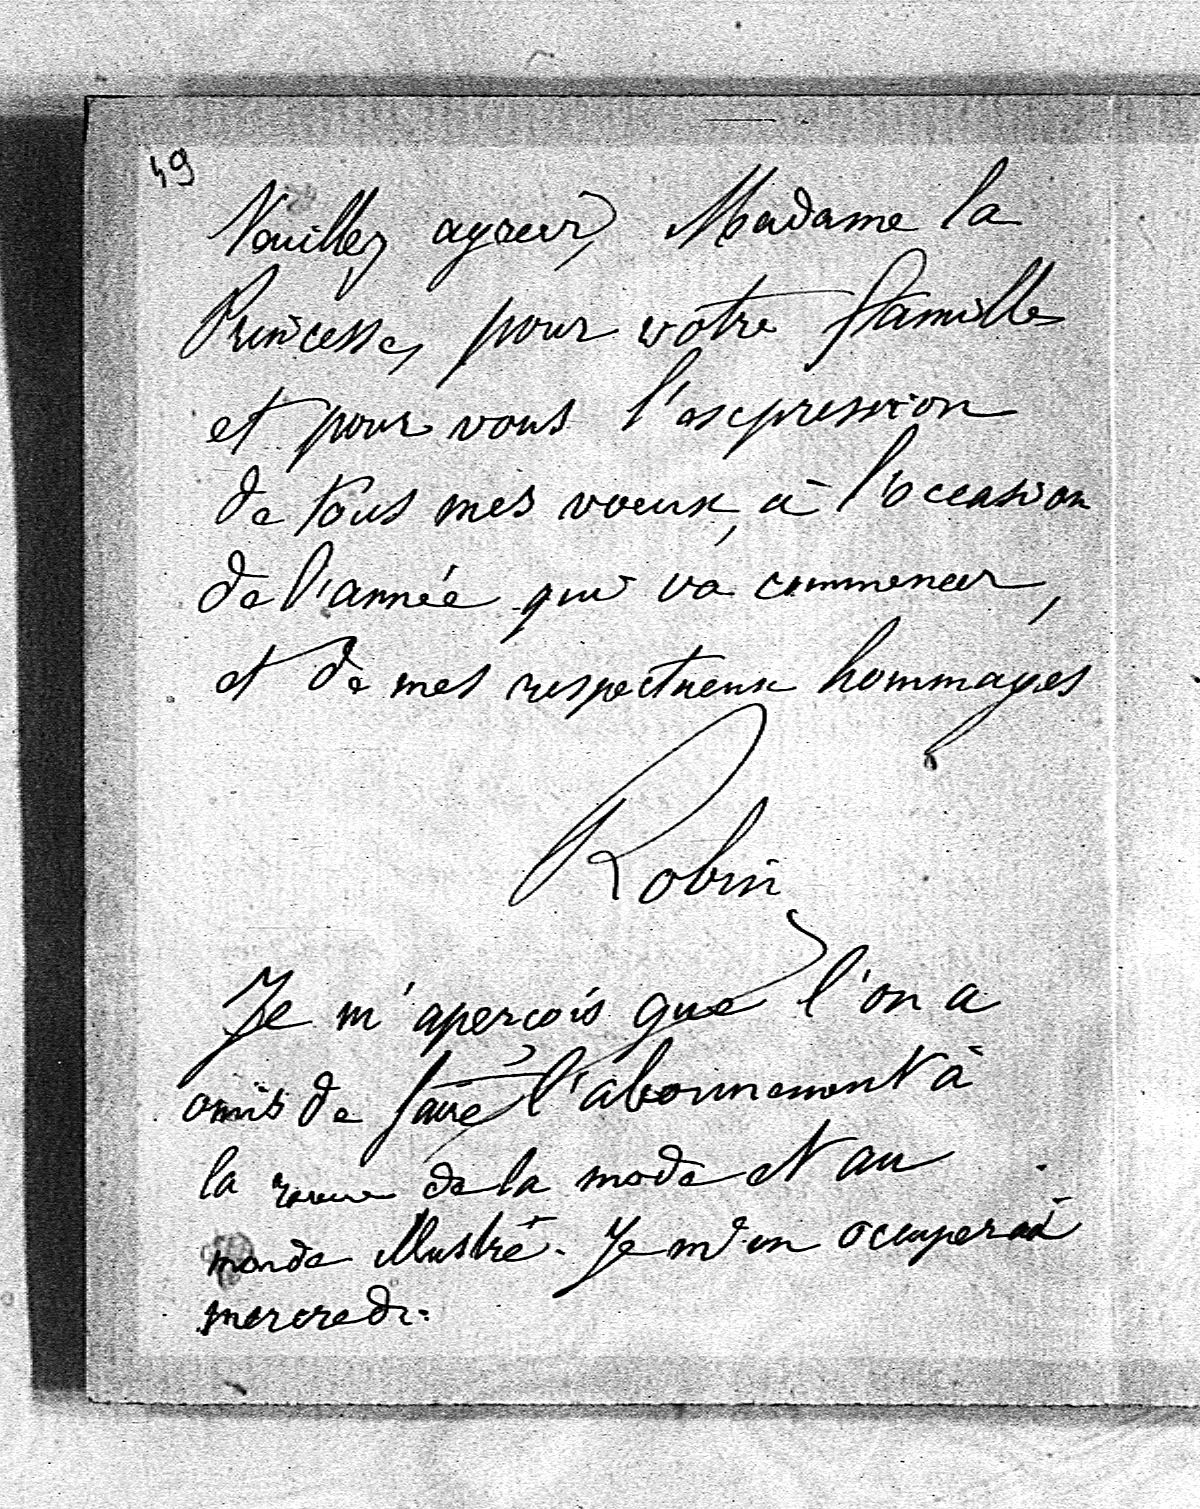 49
Veuillez agréer, Madame la
Princesse, pour votre famille
et pour vous l'expression
de tous mes voeux, à l'occasion
de l'année qui va commencer,
et de mes respectueux hommages
Robin
Je m'aperçois que l'on a
omis de faire l'abonnement à
la revue de la mode et au
monde illustré. Je m'en occuperai
mercredi.